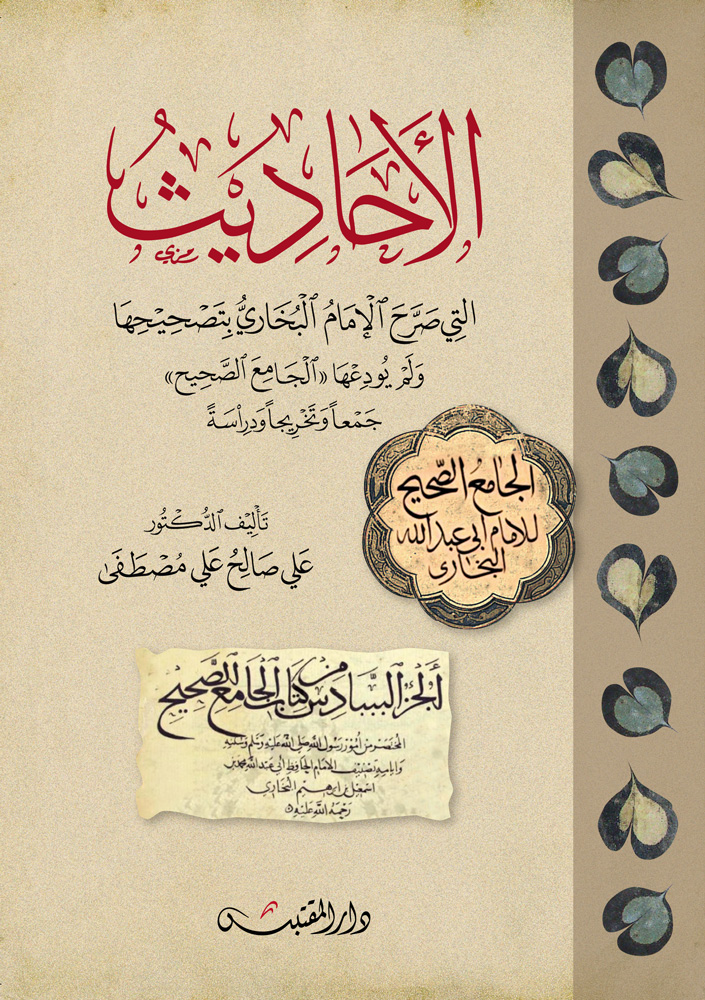 الأَحَادِيثُ
التِي صَرَّحَ ٱلْإِمَامُ ٱلْبُخَارِيُّ بِتَصْحِيْحِهَا
وَلَمْ يُودِعْهَا «ٱلْجَامِعَ ٱلصَّحِيح»
جَمْعاً وَتَخْرِيجاً وَدِرْاسَةً
الجامع الصحيح
للامام ابي عبد الله
البخارى
تَأْلِيْف ٱلدُّكْتُور
عَلي صَالِحُ عَلي مُصْطَفَىٰ
الجزء السادس من كتاب الجامع الصحيح
المختصر من امور رسول الله صلى الله عليه وسلم وسننه
وايامه تصنيف الامام الحافظ ابى عبد الله محمد بن
اسمعيل بن ابرهيم البخاري
رحمة الله عليه
دار المقتبس